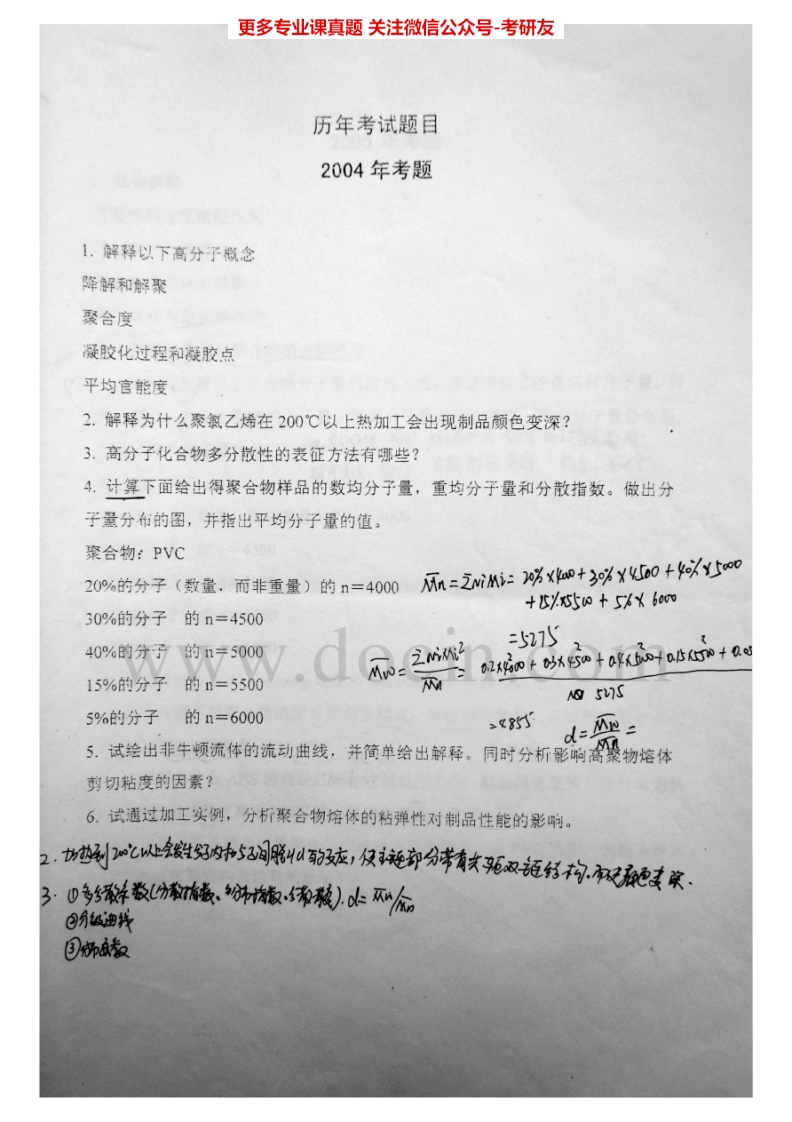 更多专业课真题 关注微信公众号-考研友
历年考试题目
2004 年考题
1. 解释以下高分子概念
降解和解聚
聚合度
凝胶化过程和凝胶点
平均官能度
2. 解释为什么聚氯乙烯在 200℃以上热加工会出现制品颜色变深？
3. 高分子化合物多分散性的表征方法有哪些？
4. 计算下面给出得聚合物样品的数均分子量，重均分子量和分散指数。做出分
子量分布的图，并指出平均分子量的值。
聚合物：PVC
20%的分子（数量，而非重量）的 n＝4000 M̅n = ΣNiMi = 20%×4000 + 30%×4500 + 40%×5000
+15%×5500 + 5%×6000
30%的分子 的 n＝4500
=5275
40%的分子 的 n＝5000
www.docin.com
M̅w = ΣNiMi²/M̅n = 0.2×4000² + 0.3×4500² + 0.4×5000² + 0.15×5500² + 0.05
5275
15%的分子 的 n＝5500
5%的分子 的 n＝6000
=4855 d = M̅w/M̅n =
5. 试绘出非牛顿流体的流动曲线，并简单给出解释。同时分析影响高聚物熔体
剪切粘度的因素？
6. 试通过加工实例，分析聚合物熔体的粘弹性对制品性能的影响。
2. 加热到 200℃以上会发生分子内和分子间脱HCl的反应，使主链部分带有共轭双键结构，而使颜色变深.
3. ①多分散系数(分散指数、分布指数、). d= M̅w/M̅n
②分级曲线
③分布函数